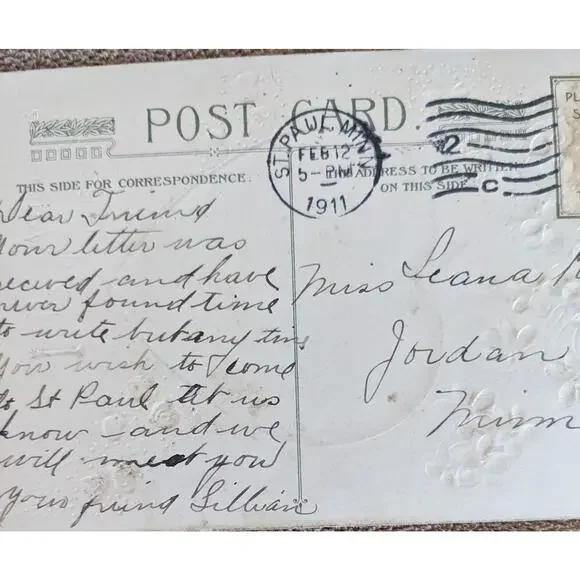 POST CARD.
THIS SIDE FOR CORRESPONDENCE.
THE ADDRESS TO BE WRITTEN
ON THIS SIDE
ST. PAUL, MINN.
FEB 12
5- PM
1911
2
C
PL
S
Dear Friend
your letter was
recieved and have
never found time
to write but any tim
you wish to come
to St Paul let us
know and we
will meet you
your friend Lillian
Miss Leana
Jordan
Minn